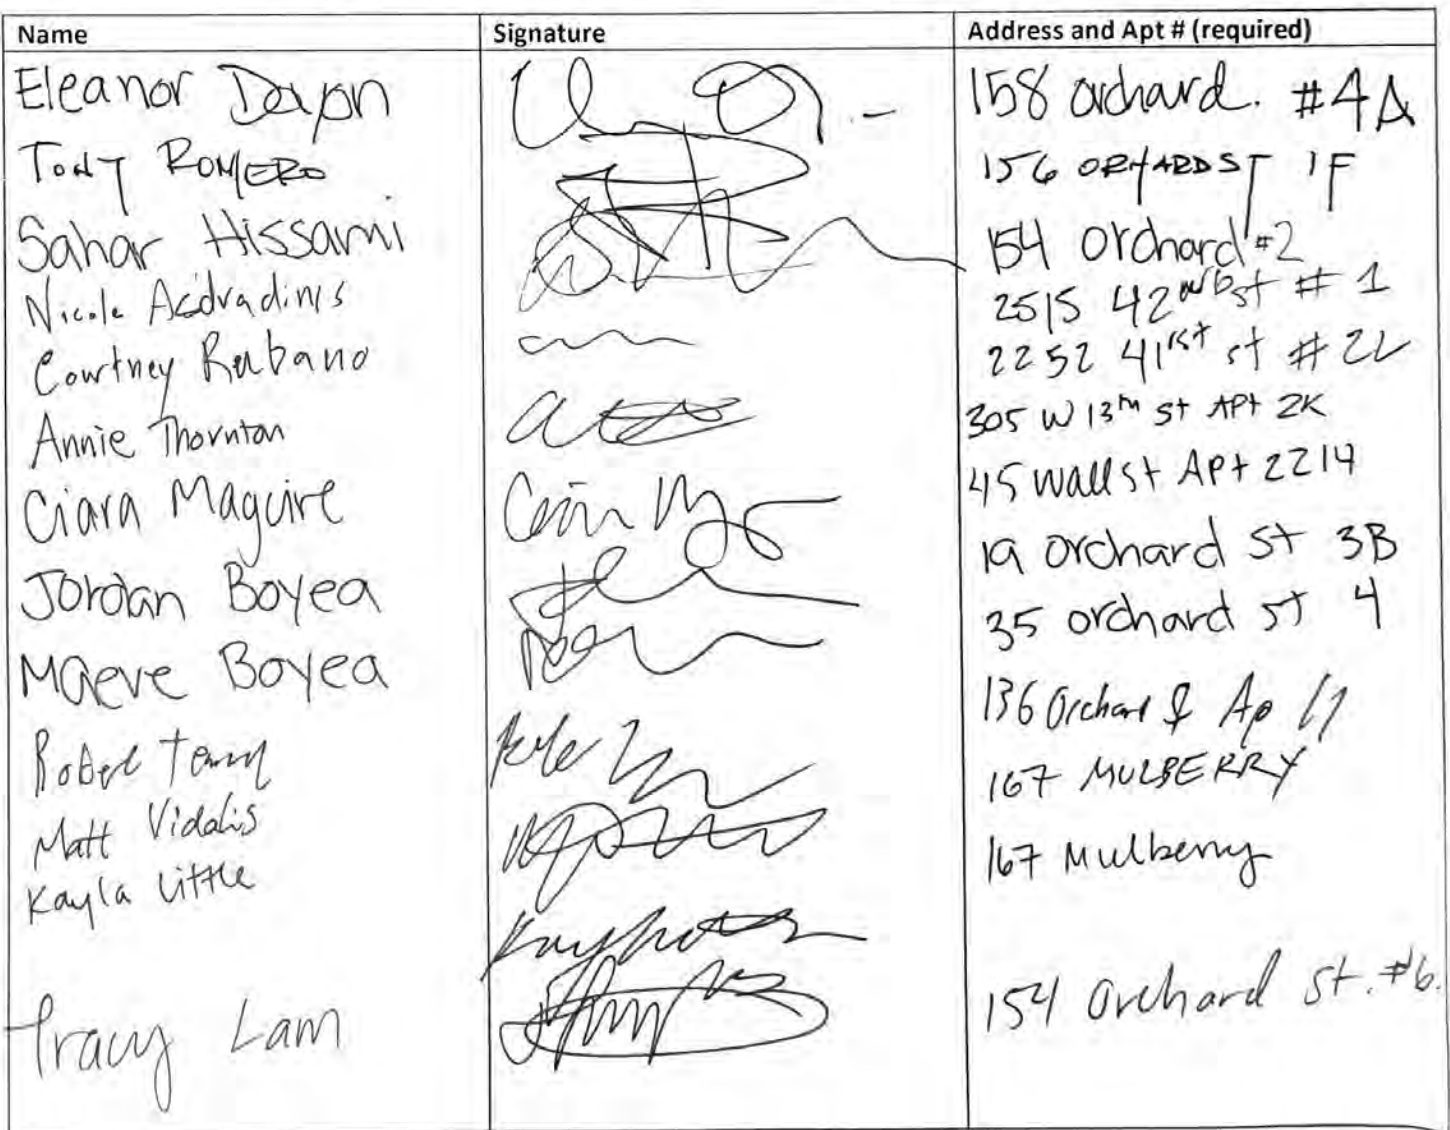 Name Signature Address and Apt # (required)
Eleanor 158 orchard. #4A
TONY ROMERO 156 ORHARD ST 1F
Sahar Hissami 154 orchard #2
Nicole 2515 42 st # 1
Courtney Rubano 2252 41rst st # 2L
Annie Thornton 305 W 13th st APt 2K
Ciara Maguire 45 Wall st Apt 2214
Jordan Boyea 19 orchard st 3B
Maeve Boyea 35 orchard st 4
136 Orchard
Matt Vidalis 167 MULBERRY
Kayla Little 167 Mulberry
Tracy Lam 154 Orchard st. #6.